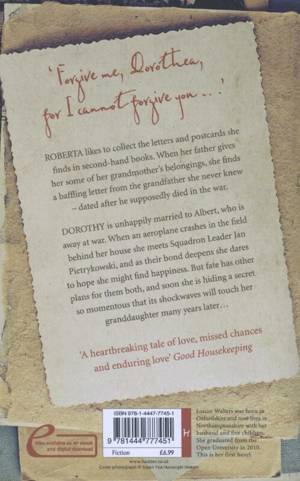 'Forgive me, Dorothea,
for I cannot forgive you . . .'
ROBERTA likes to collect the letters and postcards she
finds in second-hand books. When her father gives
her some of her grandmother's belongings, she finds
a baffling letter from the grandfather she never knew
– dated after he supposedly died in the war.
DOROTHY is unhappily married to Albert, who is
away at war. When an aeroplane crashes in the field
behind her house she meets Squadron Leader Jan
Pietrykowski, and as their bond deepens she dares
to hope she might find happiness. But fate has other
plans for them both, and soon she is hiding a secret
so momentous that its shockwaves will touch her
granddaughter many years later…
'A heartbreaking tale of love, missed chances
and enduring love' Good Housekeeping
e
Also available as an ebook
and digital download
ISBN 978-1-4447-7745-1
9 781444 777451
Fiction
£6.99
Louise Walters was born in
Oxfordshire and now lives in
Northamptonshire with her
husband and five children.
She graduated from the
Open University in 2010.
This is her first novel.